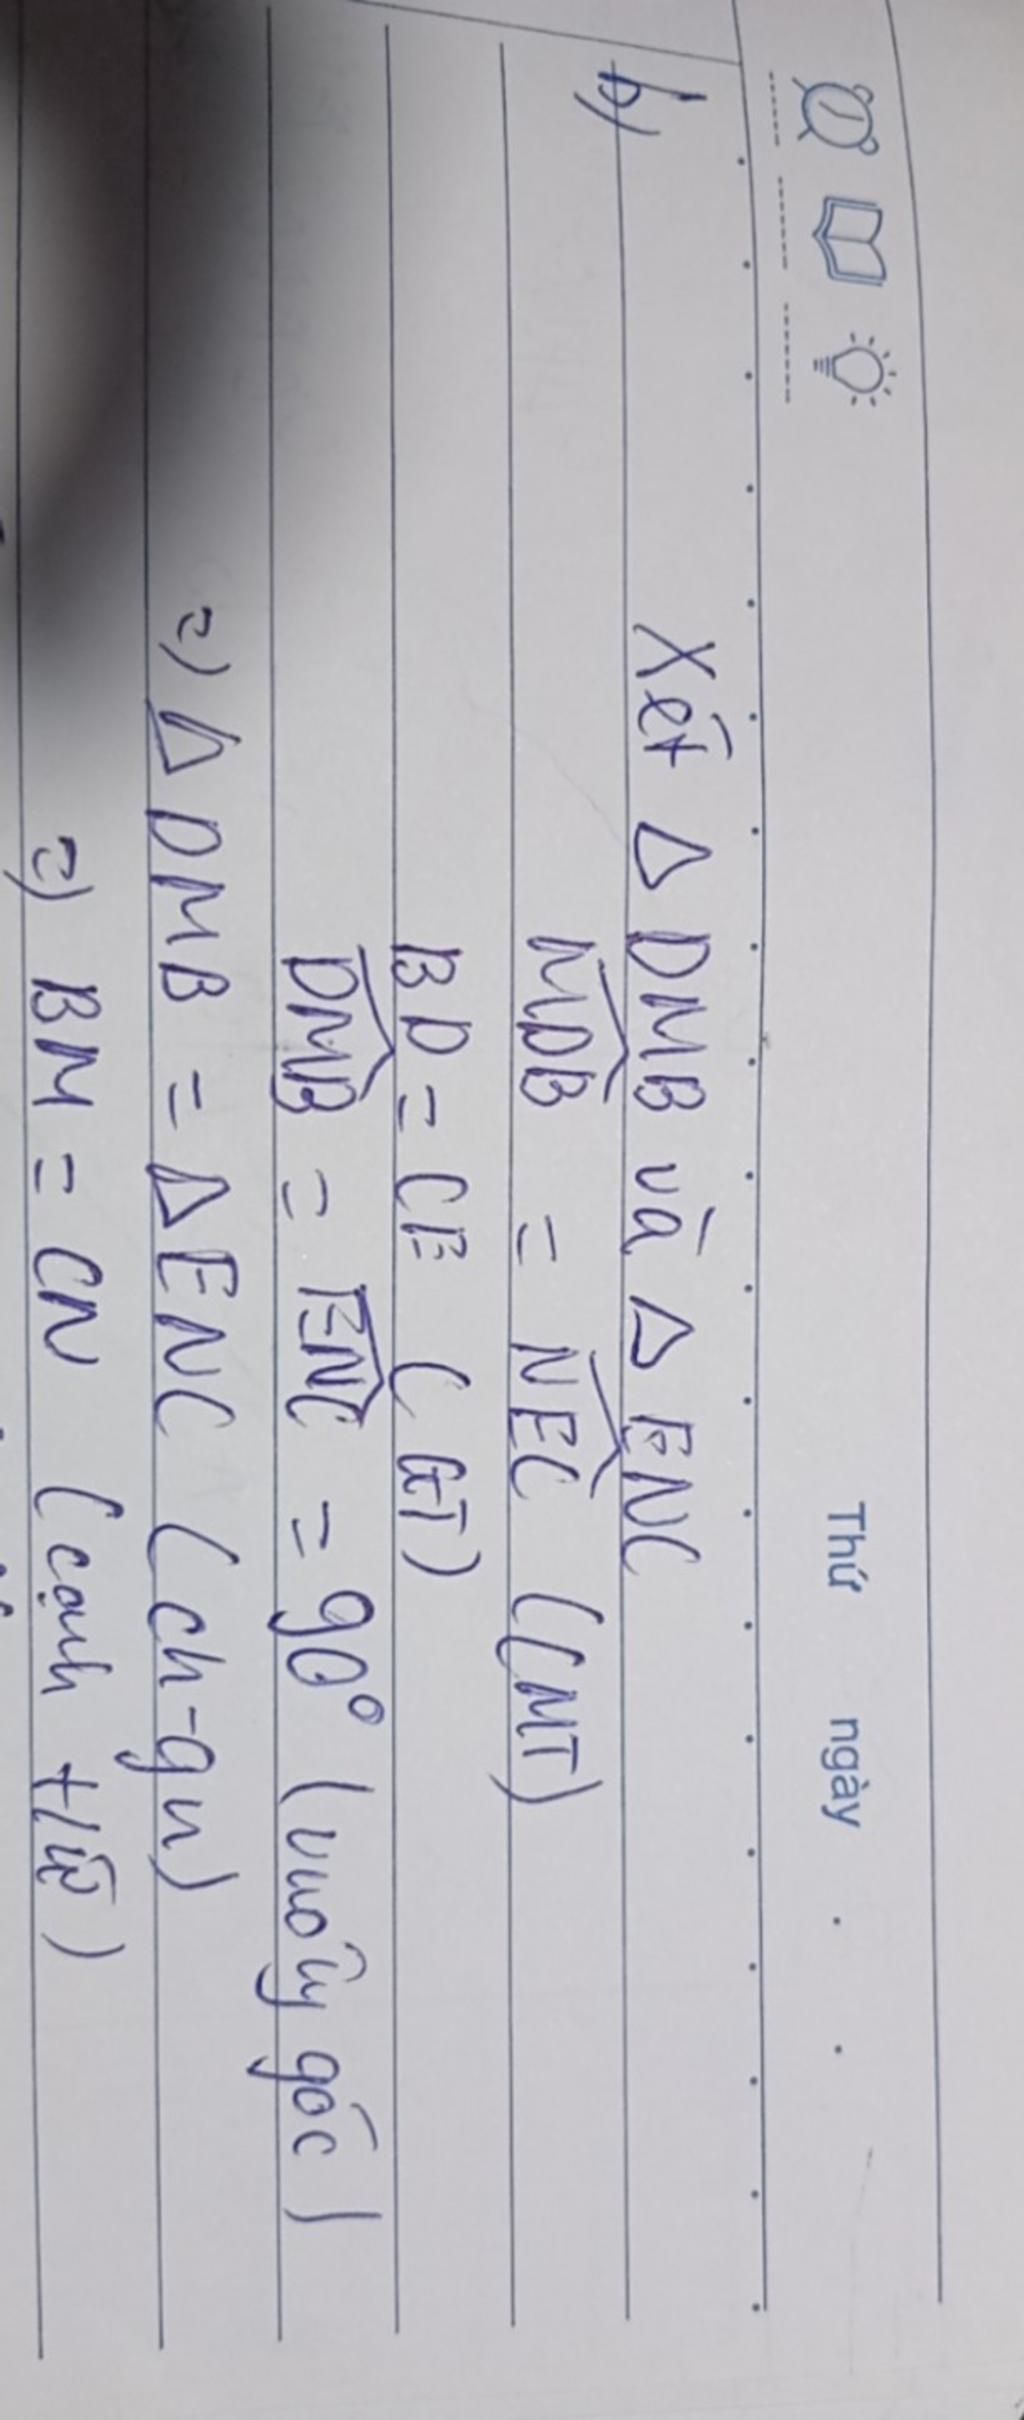 Thứ ngày . .
b) Xét Δ DMB và Δ ENC
MDB = NEC (CMT)
BD = CE ( GT )
DMB = ENC = 90° ( vuông góc )
=) Δ DMB = Δ ENC ( ch-gn)
=) BM = CN (cạnh t/ứ )